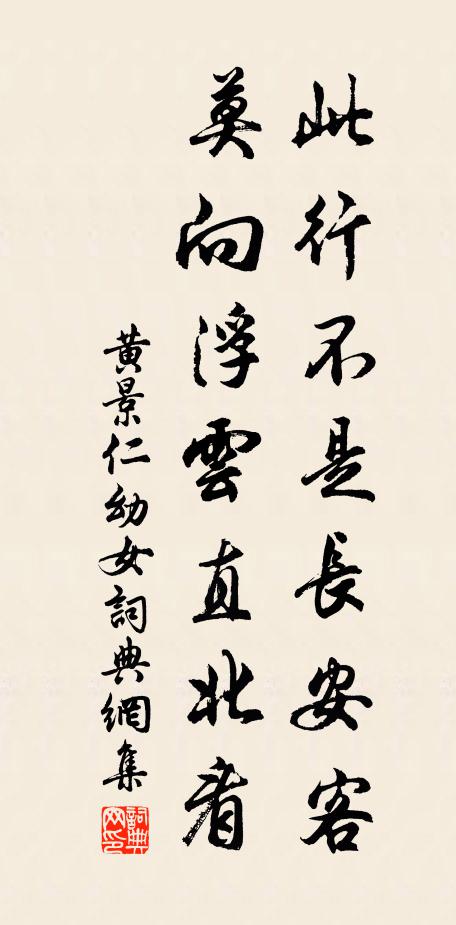 此行不是長安客
莫向浮雲直北看
黃景仁幼女詞典網集
詞典网印